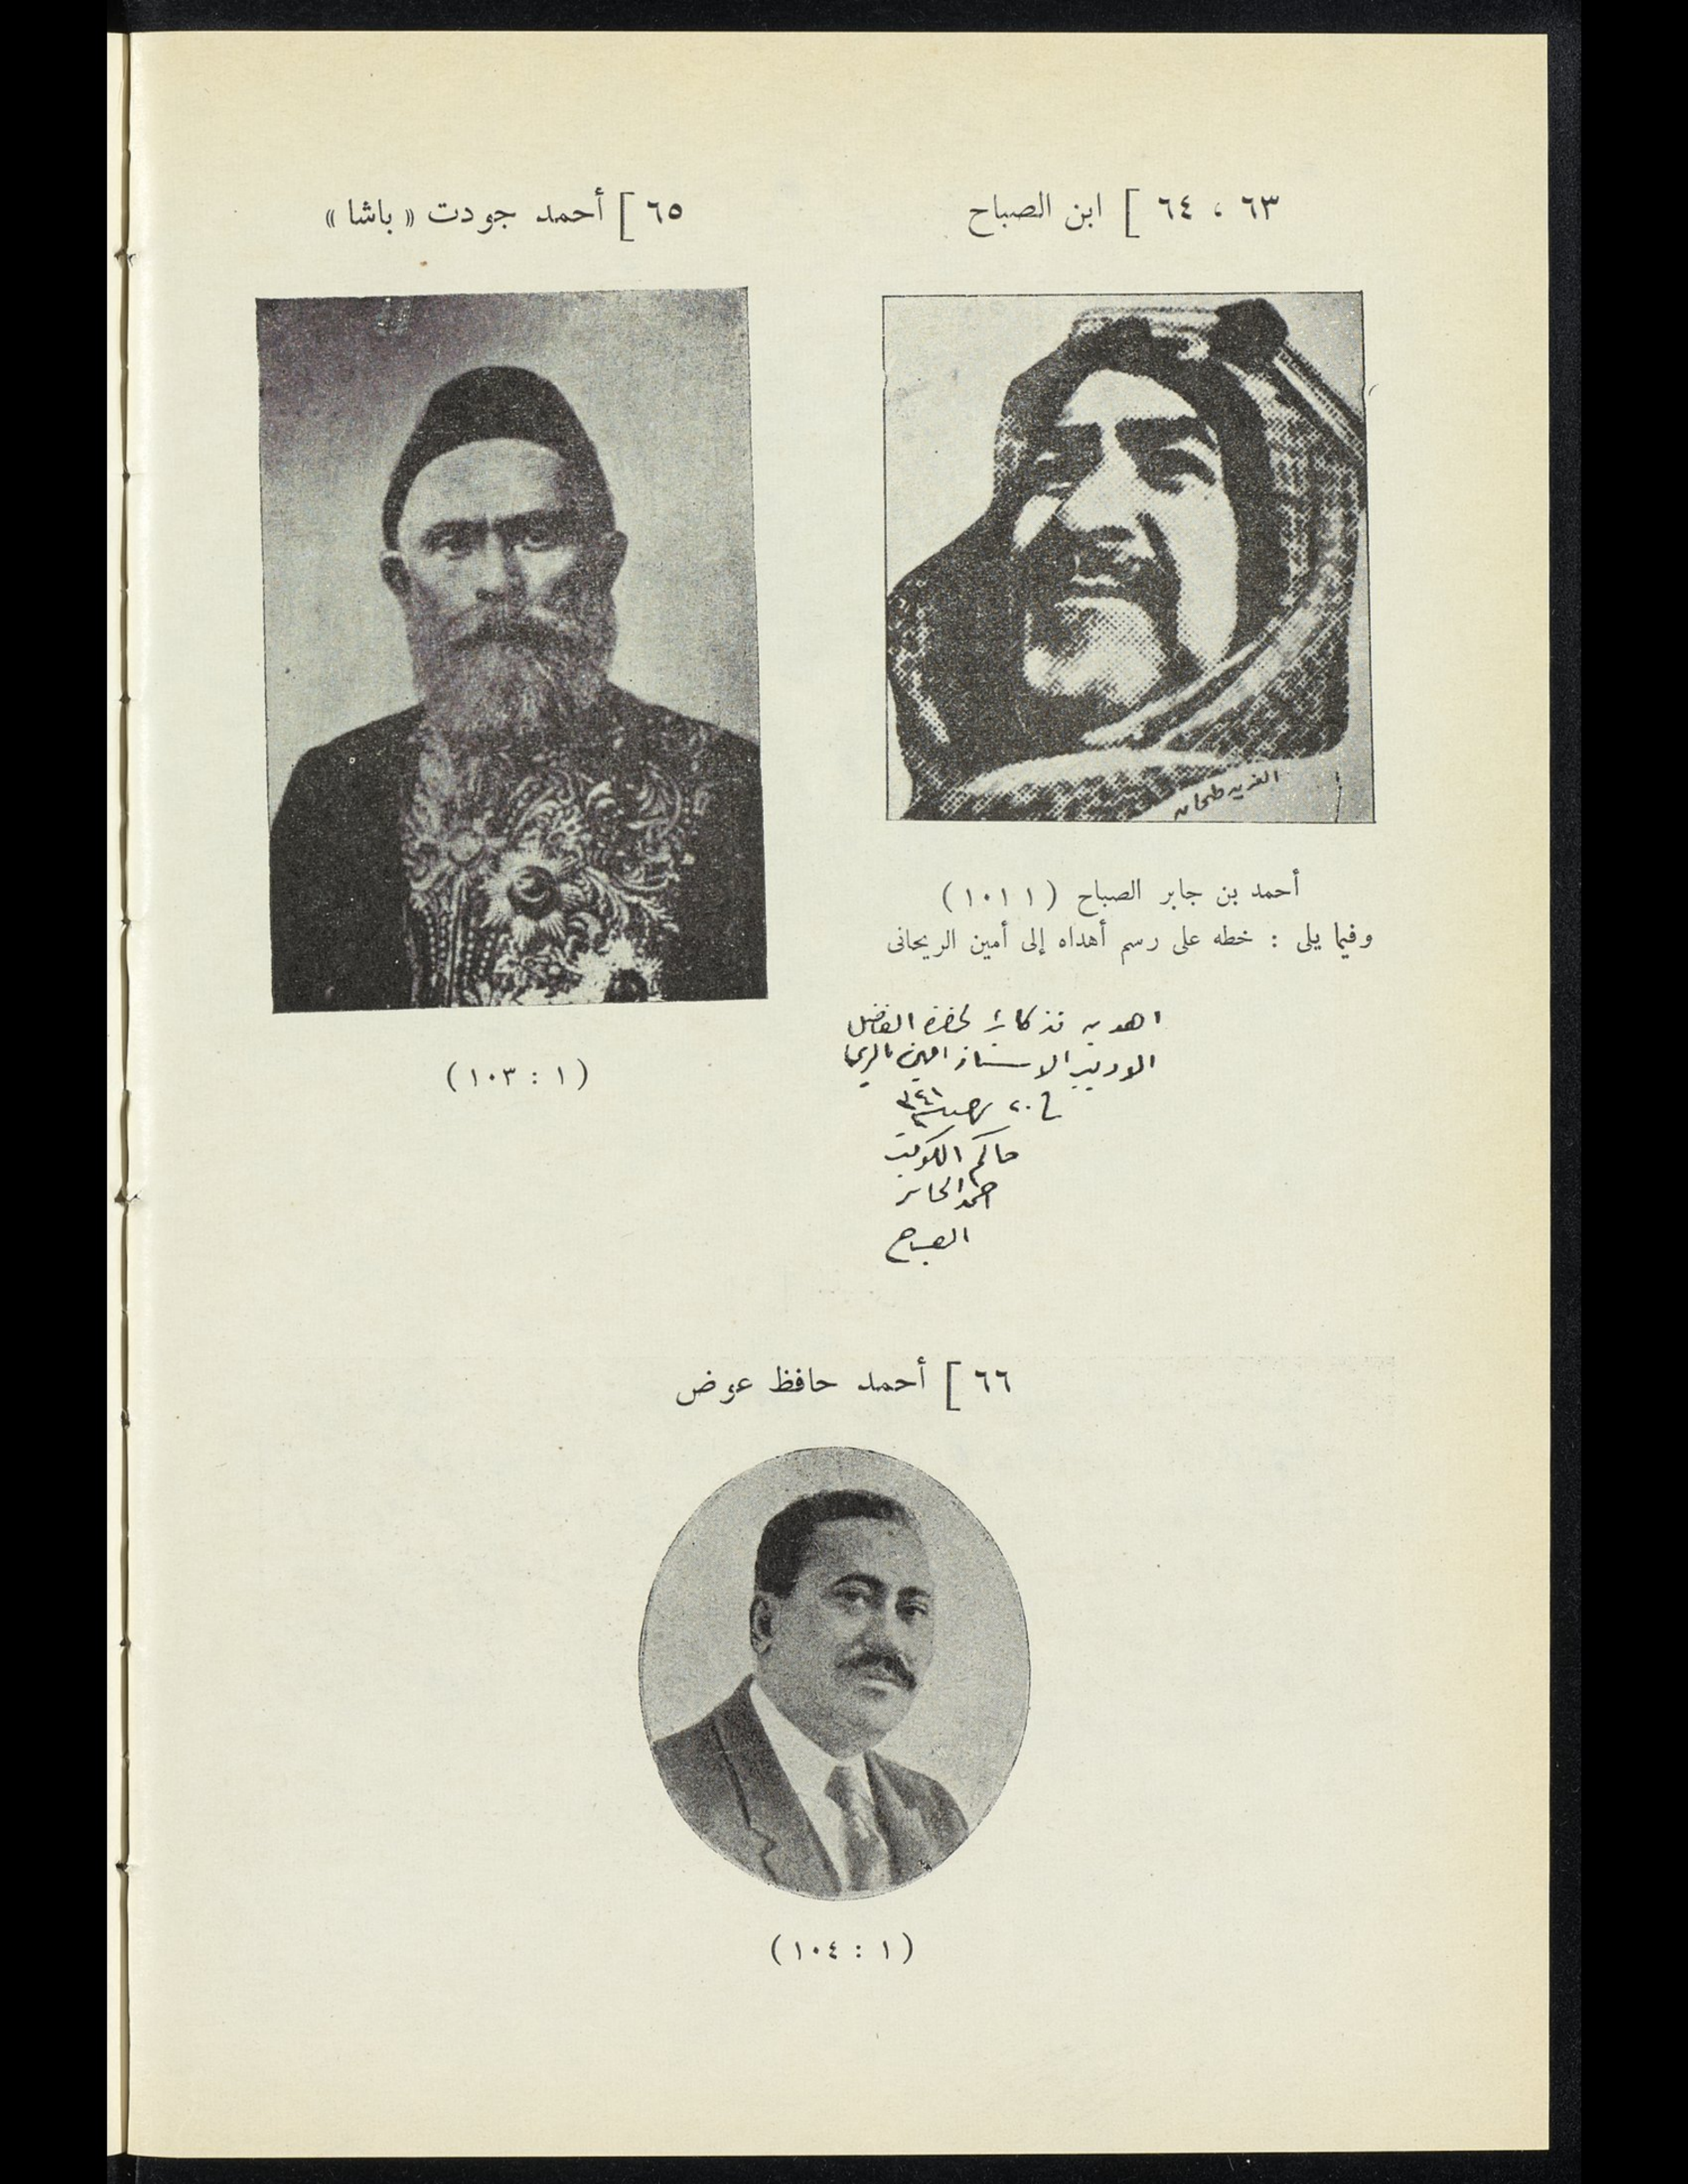 ٦٣ ، ٦٤ ] ابن الصباح
الفريد طحان
أحمد بن جابر الصباح ( ١ ١٠١ )
وفيما يلى : خطه على رسم أهداه إلى أمين الريحانى
اهديه تذكارا لحضرة الفاضل
الاديب الاستاذ امين الريحا
في ٢٠ ١٣٤١
حاكم الكويت
احمد الجابر
الصباح
٦٥ ] أحمد جودت « باشا »
( ١ : ١٠٣ )
٦٦ ] أحمد حافظ عوض
( ١ : ١٠٤ )